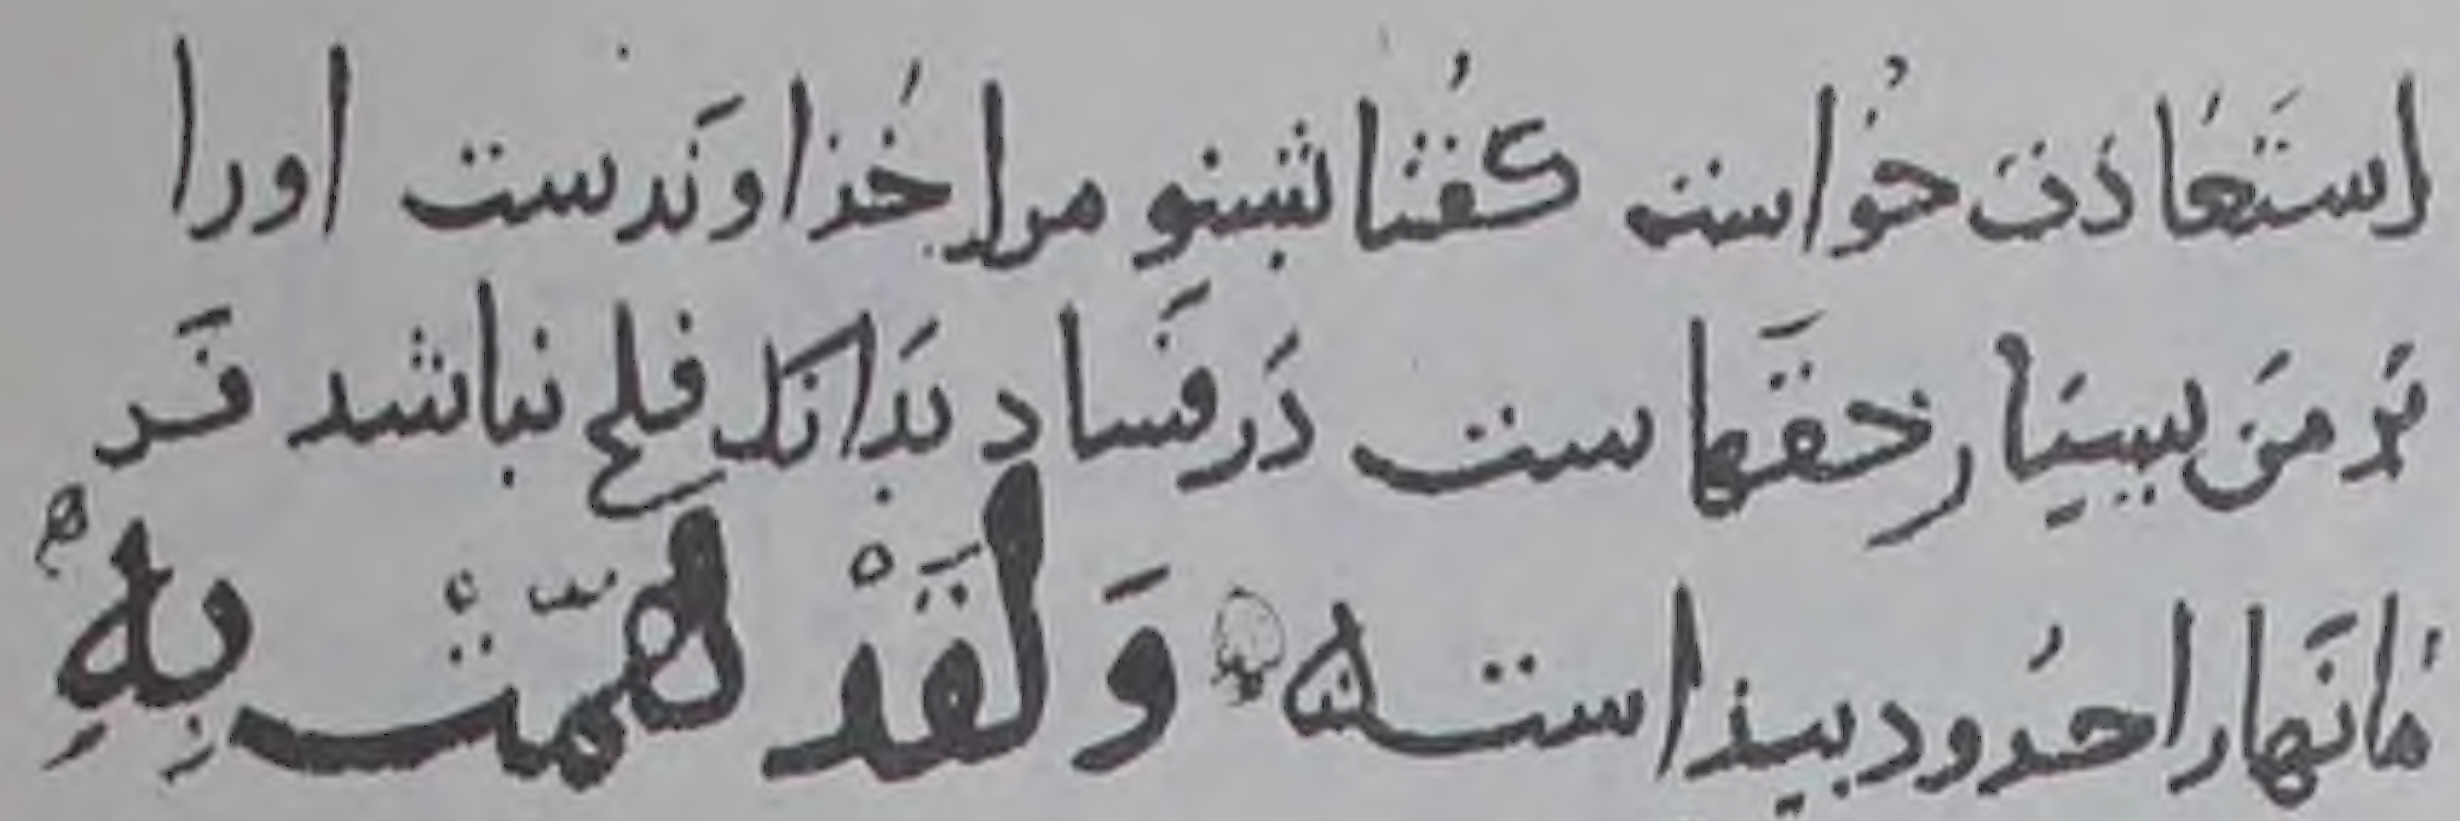 استعاذت خواست گفتا شنو مرا خذاوندست اورا
بر من بسیار حقهاست در فساد بدانک فلح نباشد فر
مانها را حدود بیذاست وَلَقَدْ هَمَّتْ بِهِ